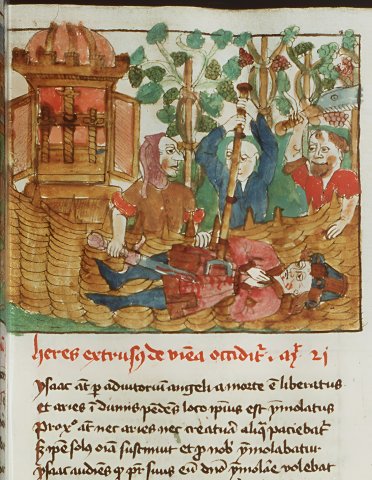 heres extrusus de vinea occiditur. mt 21
ysaac aut p adiutoriu angeli a morte e liberatus
et aries i dumis pedens loco ipius est ymolatus
prox aut nec aries nec creatura aliqua paciebat
ipe solus oia sustinuit et p nob ymolabatur
ysaac audiens q pr suus eu dno ymolare volebat